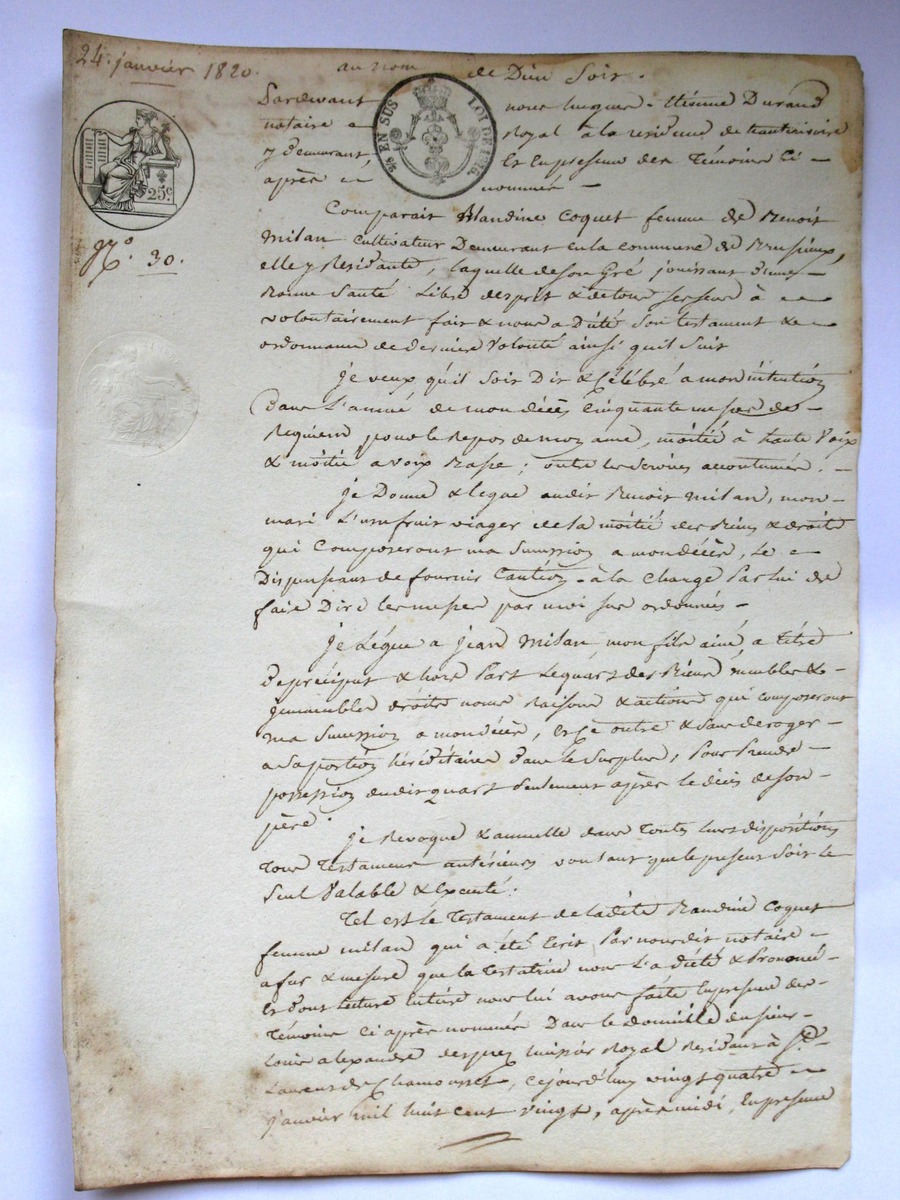 24. janvier 1820.
au nom de Dieu Soit.
Pardevant nous hugues-Etienne Durand
notaire Royal à la residence de
y demeurant, Et En presence des Témoins Ci
après nommés
25c.
2/10 EN SUS LOI DE 1816
N.° 30.
Comparait Blandine Coquet femme de Benoit
Milan Cultivateur Demeurant en la commune de Brussieux,
elle y Residante, laquelle de son Gré jouissant d'une
Bonne Santé Libre d'esprit & de tous ses sens à
volontairement fait & nous a dicté Son testament &
ordonnance de derniere Volonté ainsi qu'il Suit
Je veux qu'il Soit Dit & Célébré a mon intention
Dans L'année de mon décès Cinquante messes de
Requiem, pour le Repos de mon ame, moitié à haute Voix
& moitié a voix Basse; outre les services accoutumés.
Je Donne & legue audit Benoit Milan, mon
mari L'usufruit viager de la moitié des Biens & droits
qui Composeront ma Succession a mon décès, Le
Dispensant de fournir Caution. à la Charge Par lui de
faire Dire les messes par moi sus ordonnées
Je Légue a Jean Milan, mon fils ainé, a titre
de préciput & hors Part Le quart des Biens meubles &
immeubles droits noms Raisons & actions qui composeront
ma Succession a mon décès, et Ce outre & Sans deroger
a Sa portion héréditaire Dans le Surplus, Pour Prendre
possession dudit quart Seulement après le décès de Son
père.
Je Revoque & annulle dans Toutes leurs dispositions
Tous Testamens antérieurs voulant que le present Soit le
Seul Valable & Executé.
Tel est le Testament de ladite Blandine Coquet
femme milan qui a été Ecrit Par nous dit notaire
a fur & mesure que la Testatrice nous L'a dicté & Prononcé
Et Dont Lecture Entiere nous lui avons faite En presence des
Témoins Ci après nommés Dans le domicille du sieur
Louis alexandre despres huissier Royal Residant à St.
Laurent de Chamousset, Cejourd'huy vingt quatre
Janvier mil huit cent vingt, après midi, En presence